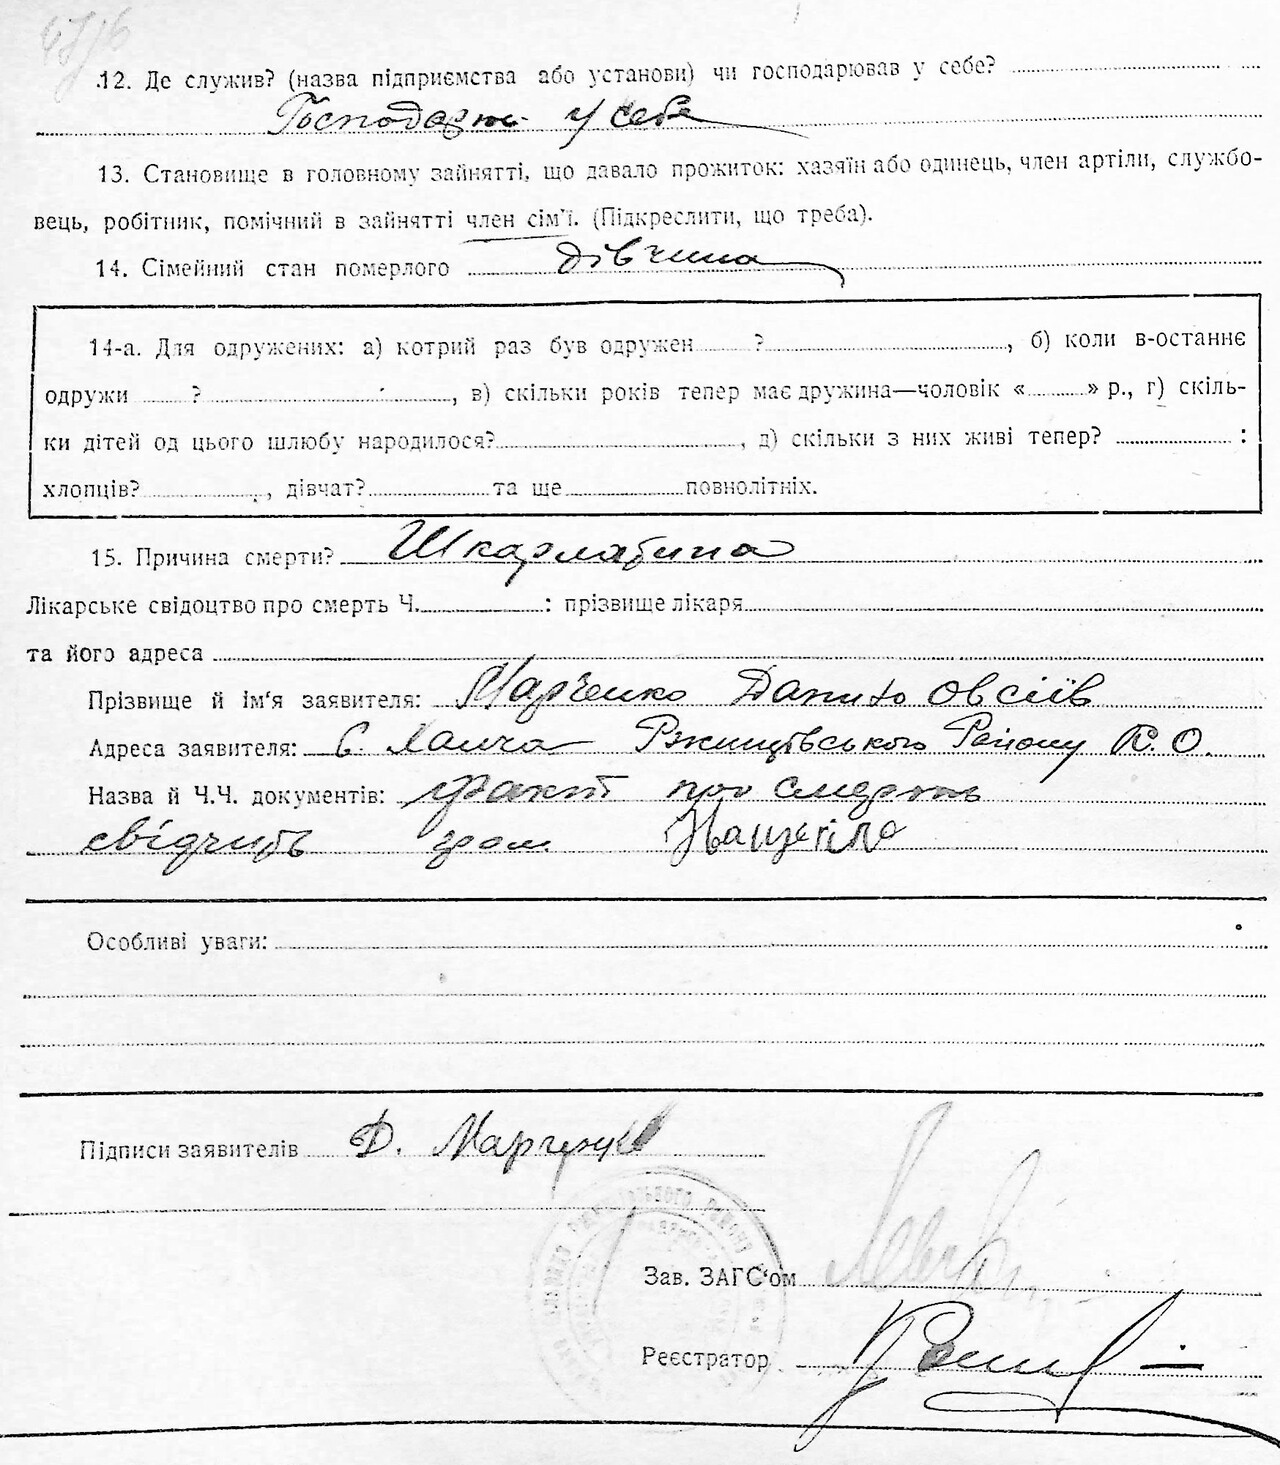 12. Де служив? (назва підприємства або установи) чи господарював у себе?
у себе
13. Становище в головному зайнятті, що давало прожиток: хазяїн або одинець, член артіли, службо-
вець, робітник, помічний в зайнятті член сім'ї. (Підкреслити, що треба).
14. Сімейний стан померлого дівчина
14-а. Для одружених: а) котрий раз був одружен ?, б) коли в-останнє
одружи ?, в) скільки років тепер має дружина—чоловік « » р., г) скіль-
ки дітей од цього шлюбу народилося?, д) скільки з них живі тепер? :
хлопців?, дівчат? та ще повнолітніх.
15. Причина смерти? Шкарлатина
Лікарське свідоцтво про смерть Ч. : прізвище лікаря
та його адреса
Прізвище й ім'я заявителя: Марченко Данило Овсіїв
Адреса заявителя: с. Ржищівського Району К. О.
Назва й Ч.Ч. документів: факт про смерть
свідчить гром.
Особливі уваги:
Підписи заявителів Д. Марченко
Зав. ЗАГС'ом
Реєстратор